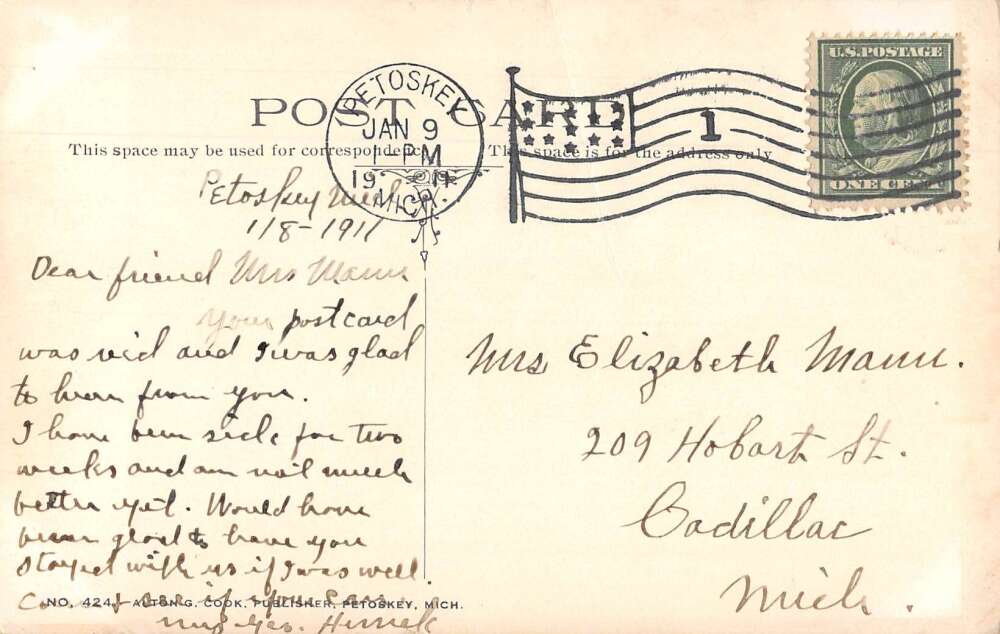 POST CARD
This space may be used for correspondence
This space is for the address only
PETOSKEY
JAN 9
1-PM
1911
MICH.
1
U.S. POSTAGE
ONE CENT
Petoskey Mich.
1/8-1911
Dear friend Mrs Mann
Your postcard
was rec'd and I was glad
to hear from you.
I have been sick for two
weeks and am not much
better yet. Would have
been glad to have you
stayed with us if I was well.
Come if you
Mrs Geo.
NO. 424. ALTON G. COOK, PUBLISHER, PETOSKEY, MICH.
Mrs Elizabeth Mann.
209 Hobart St.
Cadillac
Mich.